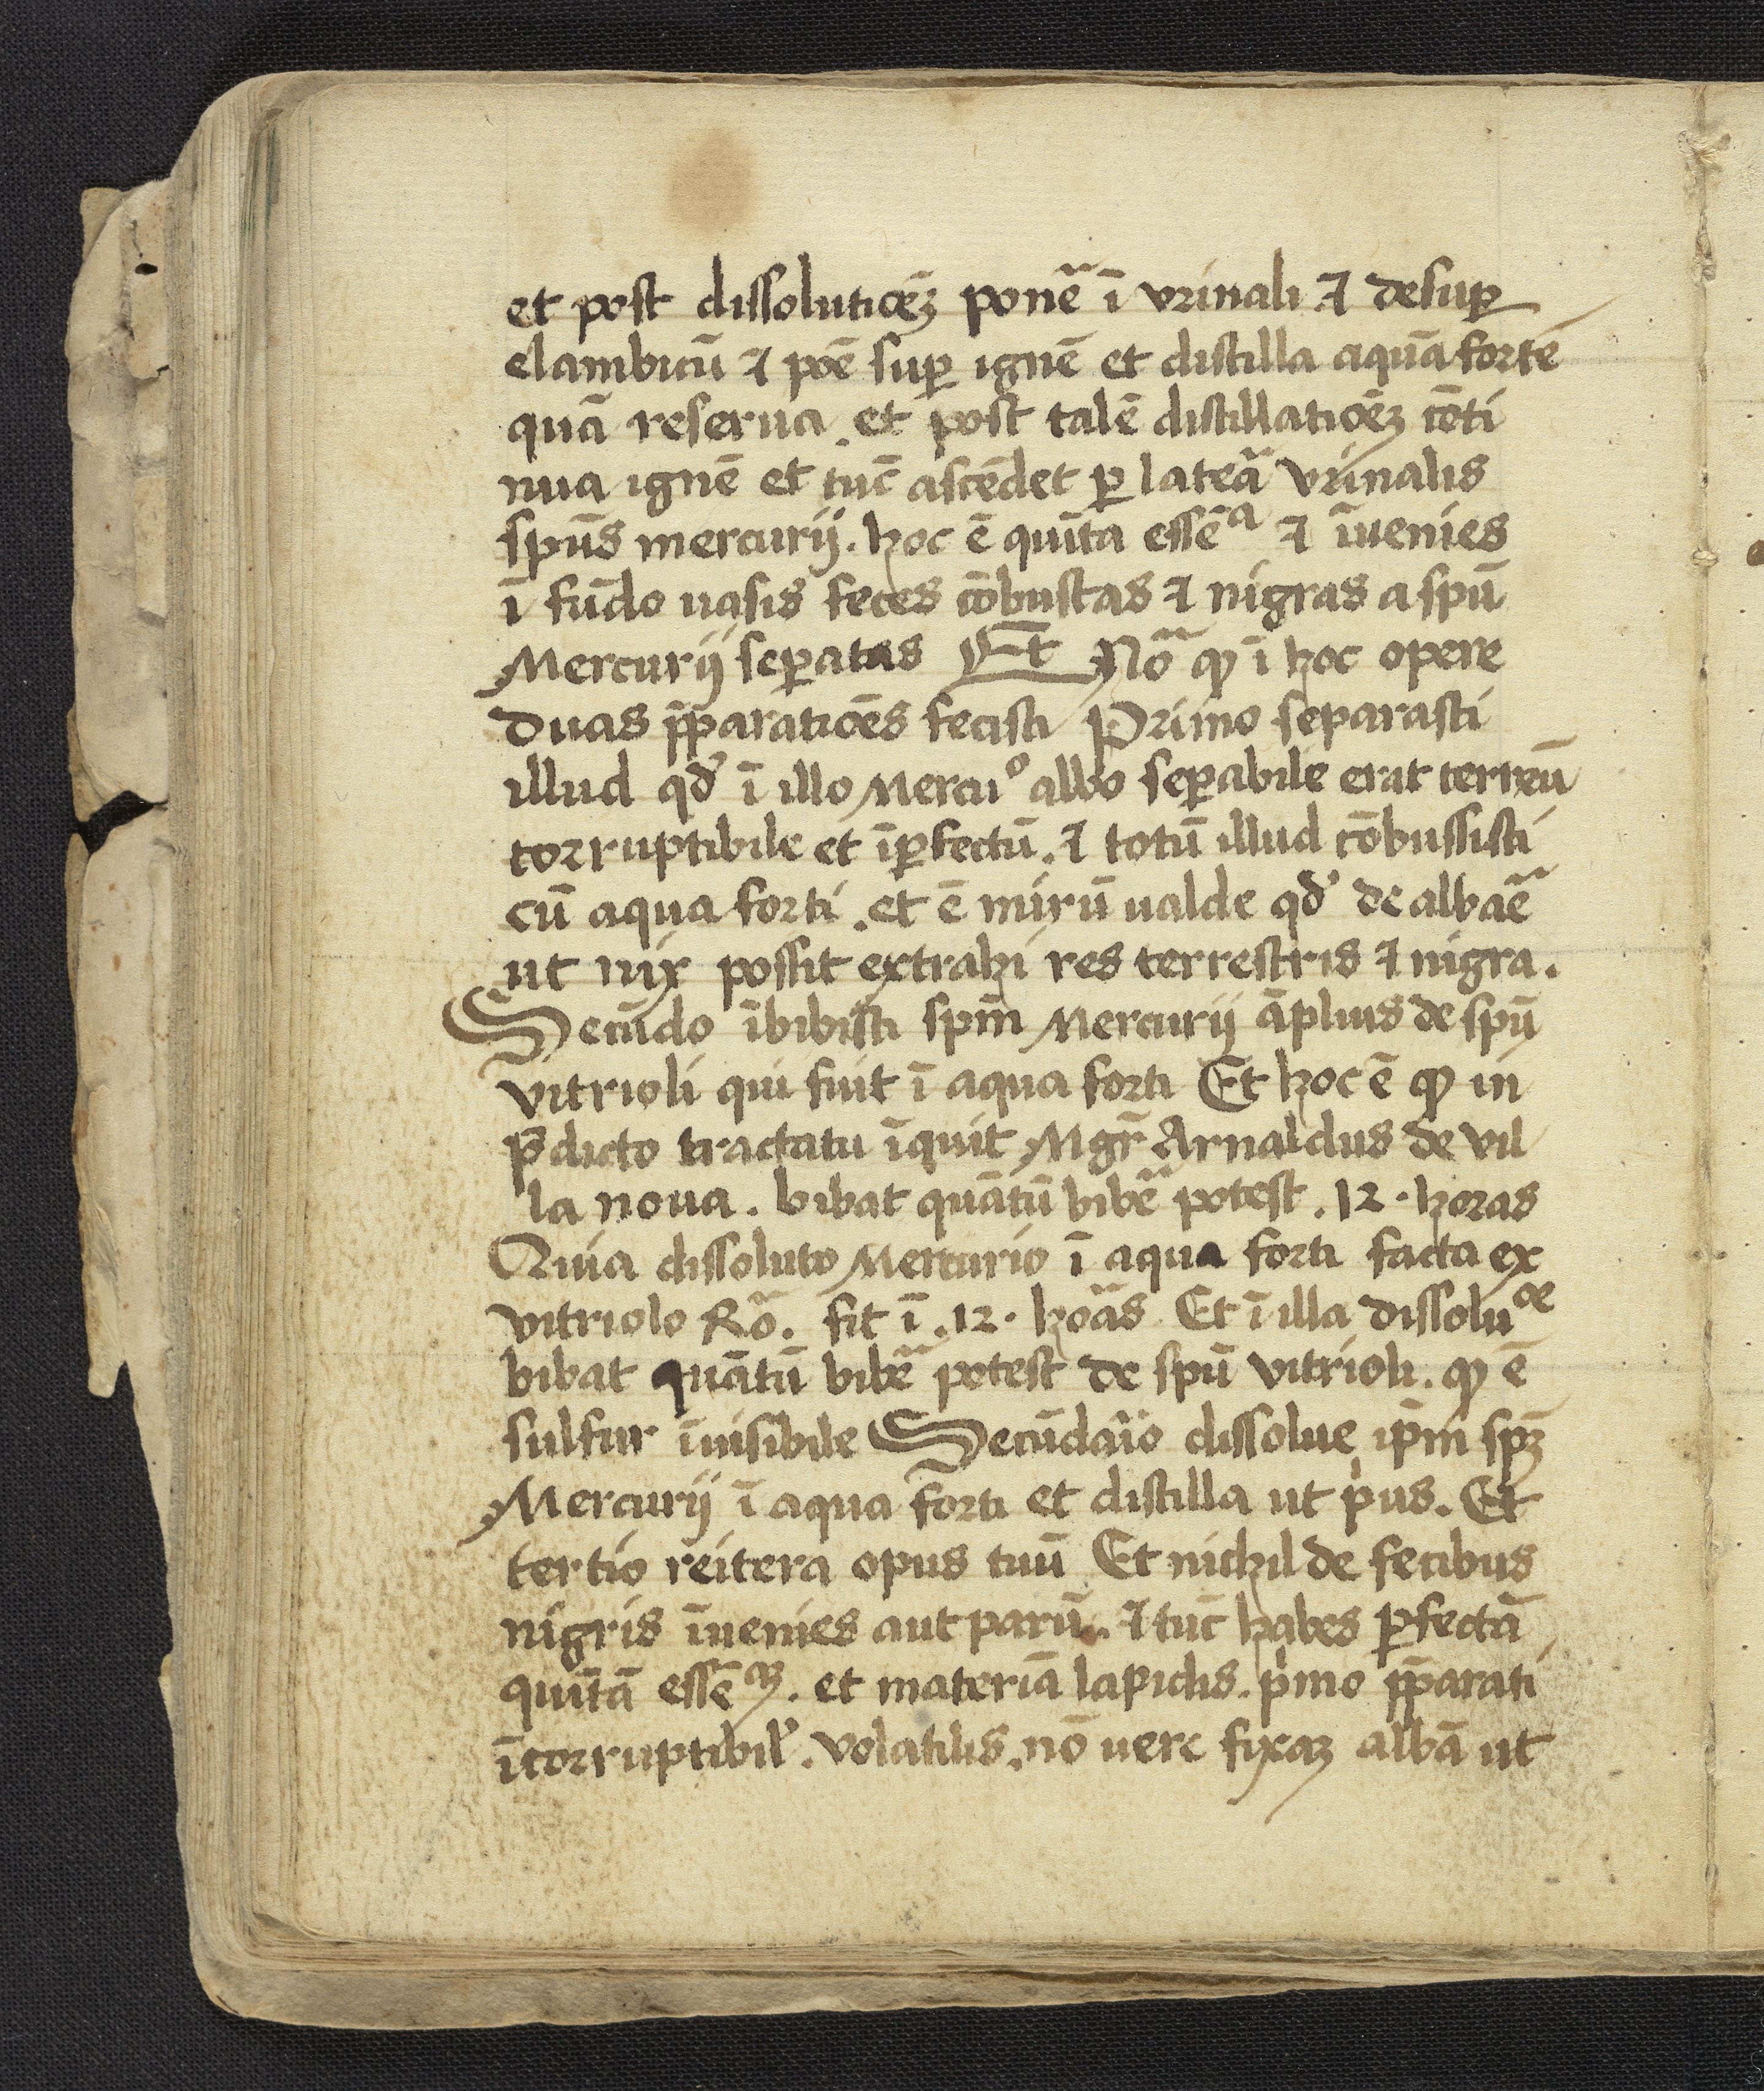 et post dissolutioēꝫ ponē ī vrinali ⁊ desuꝑ
elambicū ⁊ poē suꝑ ignē et distilla aquā fortē
quā reserua. et post talē distillatioēꝫ cōti
nua ignē et tūc ascēdet ꝑ lateā vrinalis
spūs mercurij. hoc ē quīta essēᵃ ⁊ īuenies
ī fūdo uasis feces cōbustas ⁊ nigras a spū
Mercurij seꝑatas Et Nō ꝙ ī hoc opere
duas p̄paratioēs fecisti Primo separasti
illud qd̓ ī illo Mercuiᵒ albo seꝑabile erat terreū
corruptibile et īꝑfectū. ⁊ totū illud cōbussisti
cū aqua forti. et ē mirū ualde qd̓ de albaē
ut nix possit extrahi res terrestris ⁊ nigra.
Secūdo ībibisti spm̄ Mercurij āplius de spū
vitrioli qui fuit ī aqua forti Et hoc ē ꝙ in
p̄dicto tractatu īquit Mgr̄ Arnaldus de vil
la noua. bibat quātū bibē potest. 12. horas
Quia dissoluto Mercurio ī aqua forti facta ex
vitriolo Rō. fit ī. 12. hoās Et ī illa dissoluᵒᵉ
bibat quātū bibē potest de spū vitrioli. ꝙ ē
sulfur īuisibile Secūdaīo dissolue ip̄m sp̄ꝫ
Mercurij ī aqua forti et distilla ut pⁱus. Et
tertio reitera opus tuū Et nichil de fecibus
nigris īuenies aut parū. ⁊ tūc habes ꝑfectā
quītā essēᵃꝫ. et materiā lapidis. pⁱmo p̄parati
īcorruptibil̓. volatilis. nō uere fixaꝫ albā ut